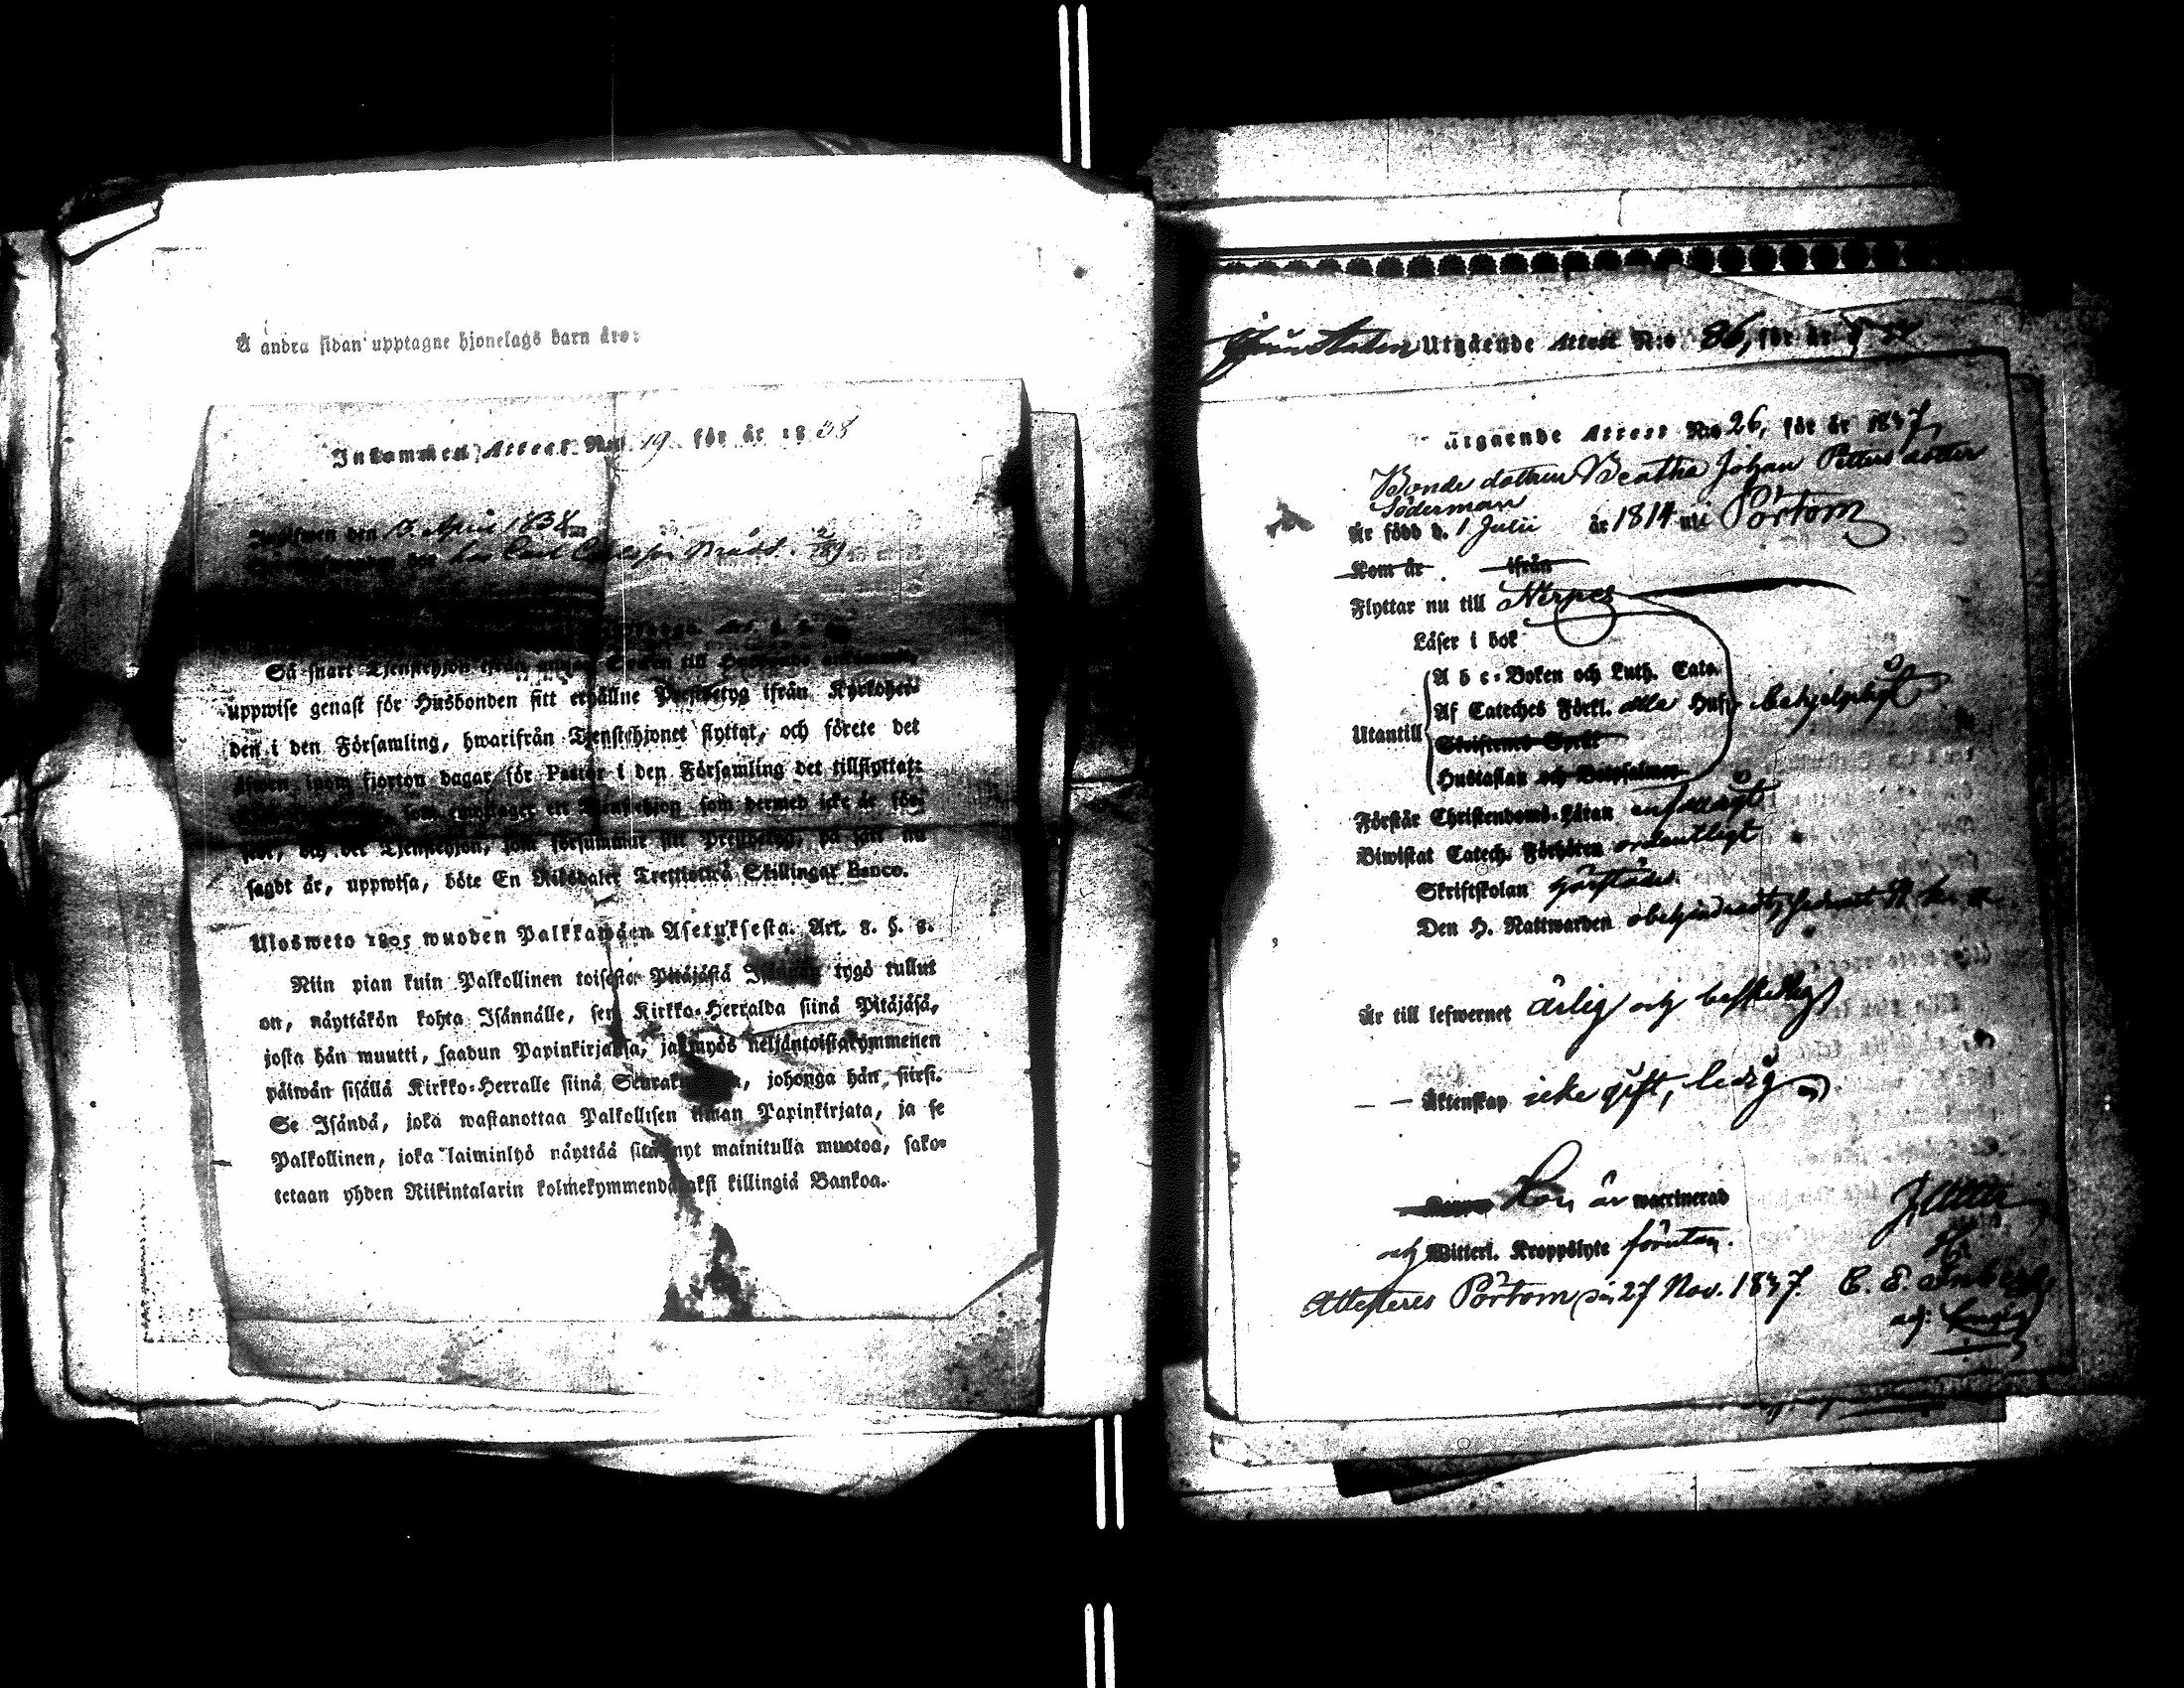 Å andra sidan upptagne hjonelags barn äro:
Inkommen Attest N:o 19 för år 1838
den 13. April 1838
hos Carl Carlsson
Så snart Tjenstehjon ifrån annan Socken till Husbonde ankommit,
uppwise genast för Husbonden sitt erhållne Prestbetyg ifrån Kyrkoher-
den i den Församling, hwarifrån Tjenstehjonet flyttat, och förete det
äfwen inom fjorton dagar för Pastor i den Församling det tillflyttat:
som emottager ett Tjenstehjon som dermed icke är för-
sedt, och det Tjenstehjon, som försummar sitt Prestbetyg, på sätt nu
sagdt är, uppwisa, böte En Riksdaler Trettiotwå Skillingar Banco.
Ulosweto 1805 wuoden Palkkawäen Asetuksesta. Art. 8. §. 8.
Niin pian kuin Palkollinen toisesta Pitäjästä Isännän tygö tullut
on, näyttäkön kohta Isännälle, sen Kirkko-Herralda siinä Pitäjäsä,
josta hän muutti, saadun Papinkirjansa, ja myös neljäntoistakymmenen
päiwän sisällä Kirkko-Herralle siinä Seurakunnasa, johonga hän siirsi.
Se Isändä, joka wastanottaa Palkollisen ilman Papinkirjata, ja se
Palkollinen, joka laiminlyö näyttää sitä nyt mainitulla muotoa, sako-
tetaan yhden Riikintalarin kolmekymmendäkaksi killingiä Bankoa.
Utgående Attest N:o 86, för år
Utgående Attest N:o 26, för år 1847,
Bonde dottren Beatha Johan Petters dotter
Söderman
Är född d. 1 Julii år 1814 uti Pörtom
Kom år ifrån
Flyttar nu till Nerpes
Läser i bok
A b c-Boken och Luth. Cate.
Af Cateches Förkl. alla Huf. behjelpligt
Utantill
Skriftenes Språk
Hustaflan och Botpsalmer
Förstår Christendoms-Läran enfaldigt
Biwistat Catech. Förhören ordentligt
Skriftskolan
Den H. Nattwarden obehindradt,
Är till lefwernet ärlig och beskedlig
— — Äktenskap icke gift, ledig
Hon är waccinerad
och Witterl. Kroppslyte förutan.
Attesteras Pörtom den 27 Nov. 1847.